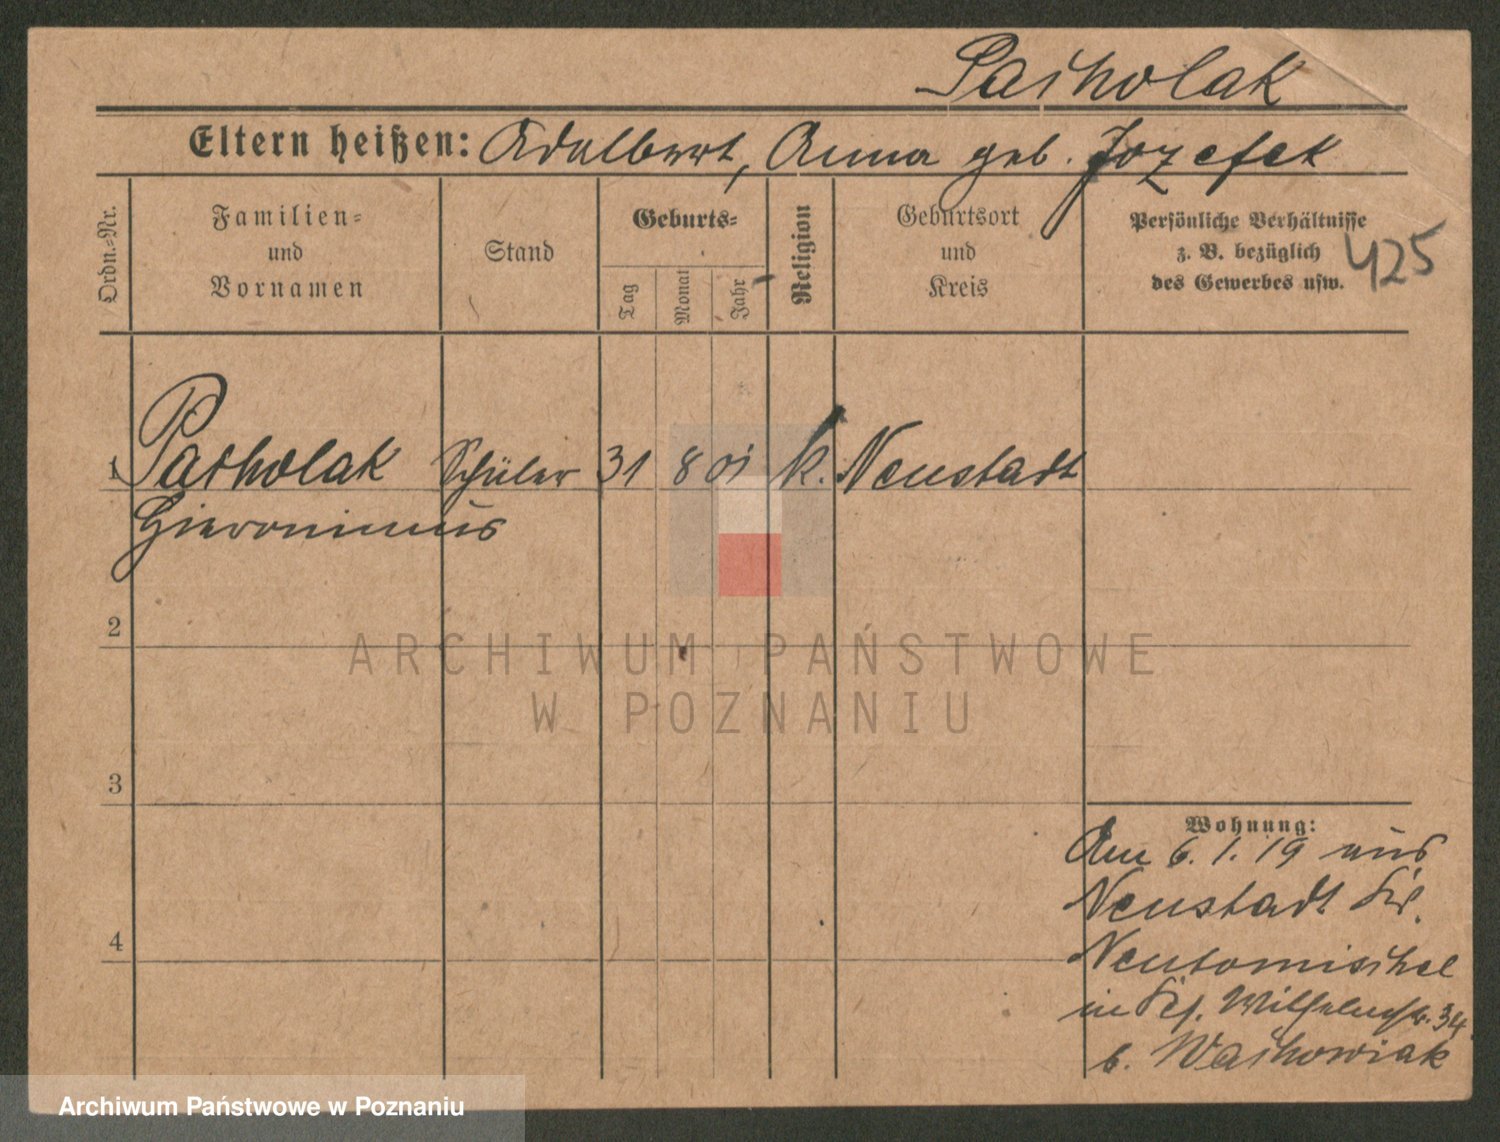 Pacholak
Eltern heißen: Adalbert, Anna geb. Jozefek
Ordn.=Nr.
Familien=
und
Vornamen
Stand
Geburts=
Tag
Monat
Jahr
Religion
Geburtsort
und
Kreis
Persönliche Verhältnisse
z. B. bezüglich
des Gewerbes usw.
425
1 Pacholak Schüler 31 8 01 k. Neustadt
Hieronimus
2
3
4
Wohnung:
Am 6. 1. 19 aus
Neustadt Kr.
Neutomischel
in Wilhelmstr. 34
b. Wachowiak
ARCHIWUM PAŃSTWOWE
W POZNANIU
Archiwum Państwowe w Poznaniu